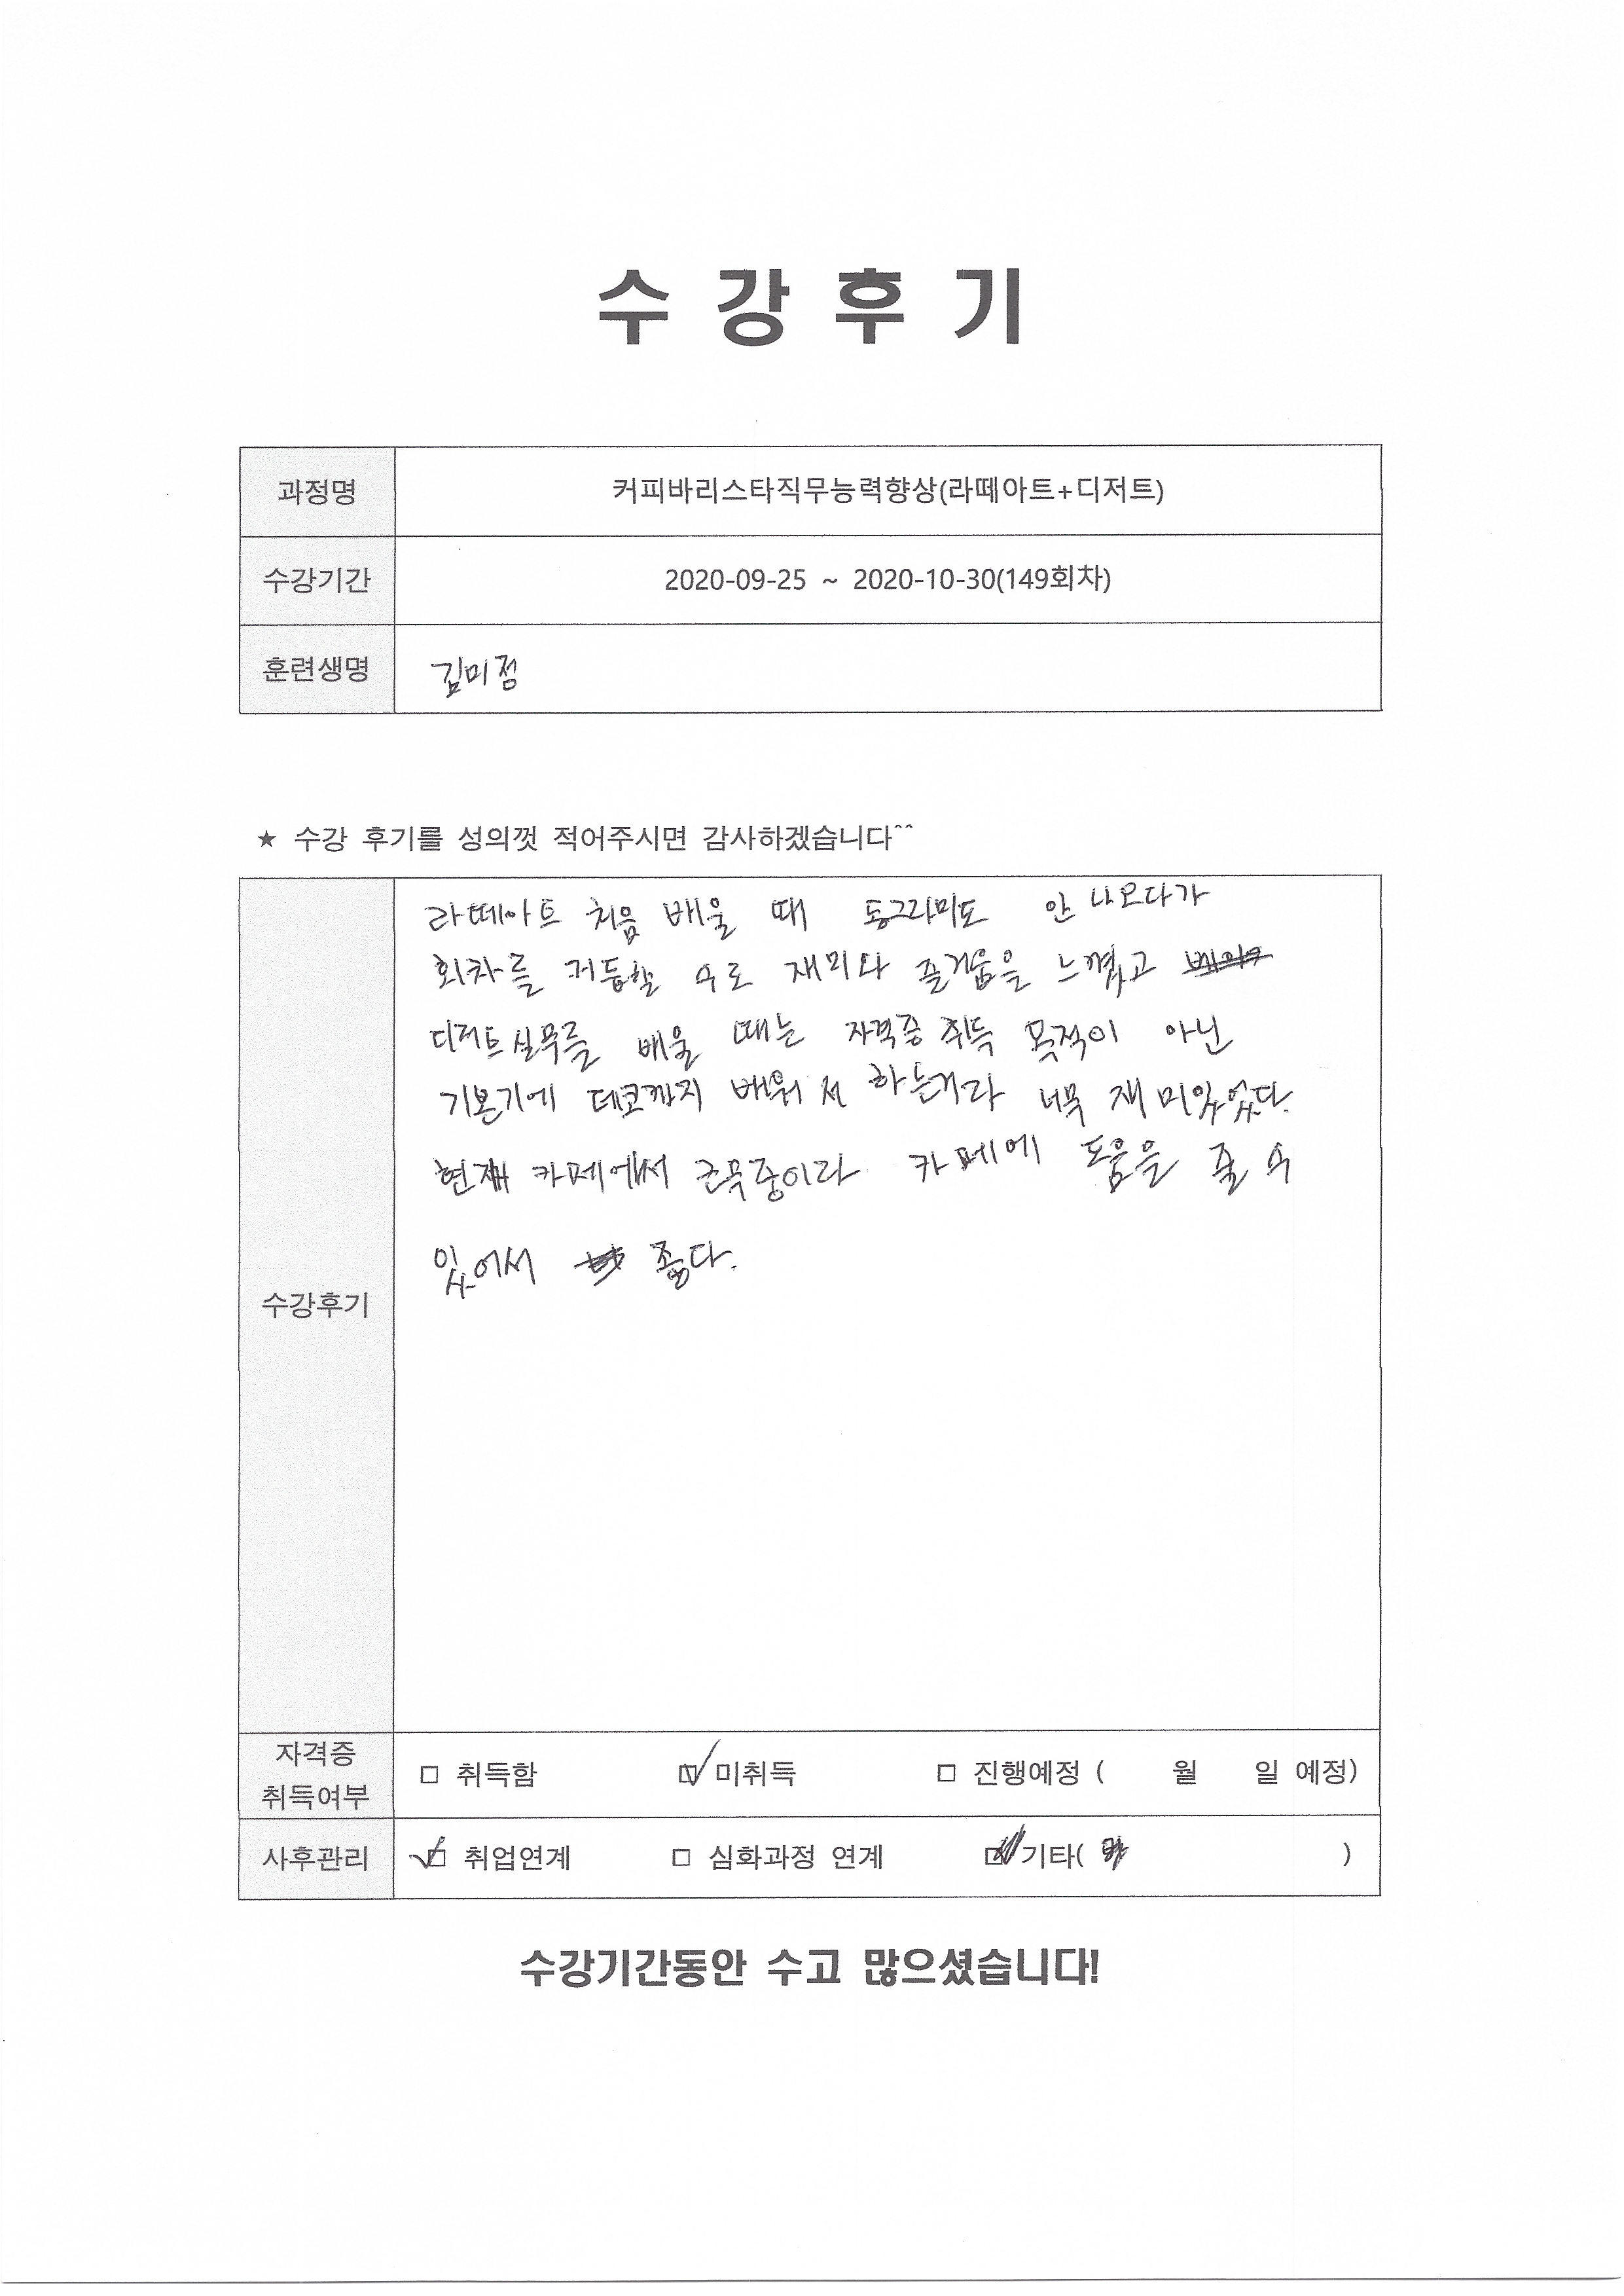 수 강 후 기
과정명 커피바리스타직무능력향상(라떼아트+디저트)
수강기간 2020-09-25 ~ 2020-10-30(149회차)
훈련생명 김미점
★ 수강 후기를 성의껏 적어주시면 감사하겠습니다^^
라떼아트 처음 배울 때 동그라미도 안 나오다가
회차를 거듭할 수로 재미와 즐거움을 느꼈고
디저트실무를 배울 때는 자격증 취득 목적이 아닌
기본기에 데코까지 배워서 하는거라 너무 재미있었다.
현재 카페에서 근무중이라 카페에 도움을 줄 수
있어서 좋다.
수강후기
자격증
취득여부
□ 취득함 ☑ 미취득 □ 진행예정 ( 월 일 예정)
사후관리 ☑ 취업연계 □ 심화과정 연계 □ 기타( )
수강기간동안 수고 많으셨습니다!